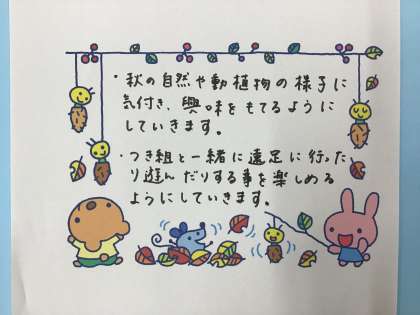 ・秋の自然や動植物の様子に
気付き、興味をもてるように
していきます。
・つき組と一緒に遠足に行った
り遊んだりする事を楽しめる
ようにしていきます。